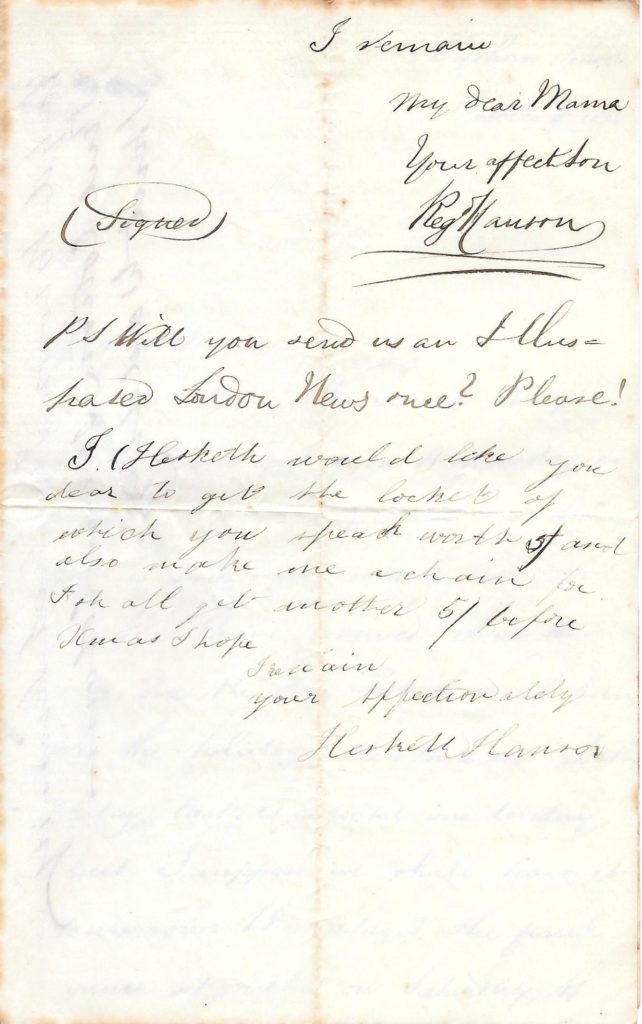 I remain
My dear Mama
Your affect son
(Signed)
Reg Hanson
PS Will you send us an Illus=
trated London News once? Please!
I (Hesketh would like you
dear to get the locket of
which you speak worth 5/ and
also make me a chain for
I shall get another 5/ before
Xmas I hope
I remain
your affectionately
Hesketh Hanson